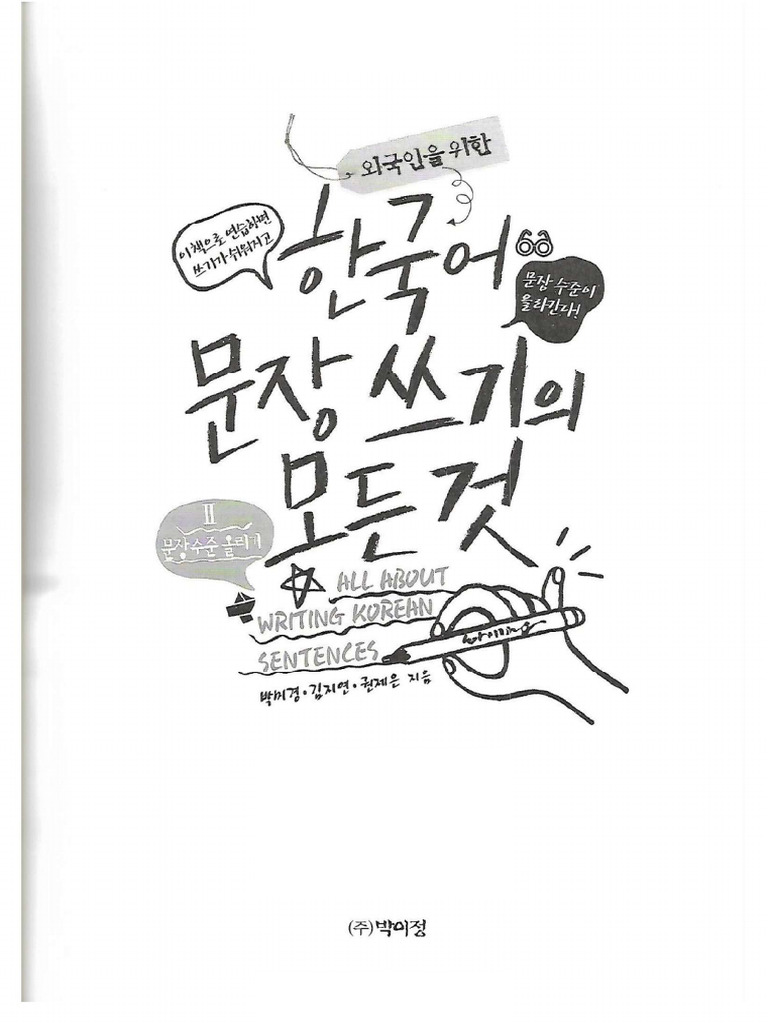 외국인을 위한
이 책으로 연습하면
쓰기가 쉬워지고
한국어
문장 수준이
올라간다!
문장 쓰기의
모든 것
II
문장 수준 올리기
ALL ABOUT
WRITING KOREAN
SENTENCES
박미경·김지연·권제은 지음
(주)박이정